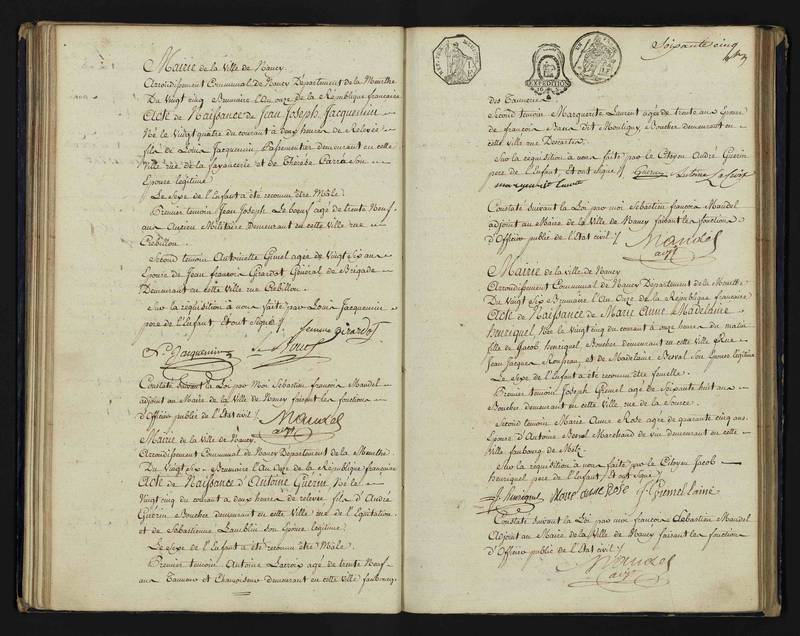 Mairie de la Ville de Nancy
Arrondissement Communal de Nancy Département de la Meurthe
Du Vingt cinq Brumaire l'An onze de la République française
Acte de Naissance de Jean Joseph Jacquemin
Né le Vingt quatre du courant à deux heures de Relevée
fils de Louis Jacquemin, Passementier demeurant en cette
Ville rue de la fayancerie et de Thérèse Carré Son
Epouse légitime
Le Sexe de l'Enfant a été reconnu être Mâle.
Premier temoin Jean Joseph Le boeuf agé de trente Neuf
ans Ancien Militaire Demeurant en cette Ville rue
Crébillon.
Second temoin Antoinette Gimel agée de Vingt Six ans
Epouse de Jean françois Girardot Général de Brigade
Demeurant en cette Ville rue Crébillon.
Sur la réquisition à nous faite par Louis Jacquemin
pere de l'Enfant Et ont Signé
femme girardot
Jacquemin
Constaté Suivant la Loi par Moi Sébastien françois Mandel
adjoint au Maire de la Ville de Nancy faisant les fonctions
d'Officier public de l'Etat civil
Mandel
adjt
Mairie de la Ville de Nancy.
Arrondissement Communal de Nancy Département de la Meurthe
Du Vingt Six Brumaire l'An onze de la République française
Acte de Naissance d'Antoine Guerin Né le
Vingt cinq du courant à deux heures de relevée fils d'André
Guérin Boucher demeurant en cette Ville rue de l'Equitation
et de Sébastienne Laublin son Epouse légitime
Le Sexe de l'Enfant a été reconnu être Mâle.
Premier temoin Antoine Lacroix agé de trente Neuf
ans Tanneur et Chamoiseur demeurant en cette Ville faubourg
Soixante cinq
REP. FRA.
des Tanneries
Second temoin Marguerite Laurent agée de trente ans Epouse
de françois dit Montigny, Boucher demeurant en
cette Ville rue Descartes.
Sur la requisition à nous faite par le Citoyen André Guerin
pere de l'Enfant, Et ont Signé Guerin Antoine La Croix
marguerite laurent
Constaté Suivant la Loi par moi Sébastien françois Mandel
adjoint au Maire de la Ville de Nancy faisant les fonctions
d'Officier public de l'Etat civil
Mandel
adjt
Mairie de la Ville de Nancy
Arrondissement Communal de Nancy Département de la Meurthe
Du Vingt Six Brumaire l'An Onze de la République française
Acte de Naissance de Marie Anne Madelaine
henriquel Née le Vingt cinq du courant à onze heures du matin
fille de Jacob henriquel, Boucher, demeurant en cette Ville Rue
Jean Jacques Rousseau, et de Madelaine Son Epouse légitime
Le Sexe de l'Enfant a été reconnu être femelle.
Premier temoin Joseph Gimel agé de Soixante huit ans
Boucher demeurant en cette Ville rue de la Source.
Second temoin Marie Anne Rose agée de quarante cinq ans.
Epouse d'Antoine Marchand de vin demeurant en cette
Ville faubourg de Metz.
Sur la requisition à nous faite par le Citoyen Jacob
henriquel pere de l'Enfant, Et ont Signé
J. henriquel anne rose J. Gimel laine
Constaté Suivant la Loi par moi françois Sébastien Mandel
Adjoint au Maire de la Ville de Nancy faisant les fonctions
d'Officier public de l'Etat civil
Mandel
adjt